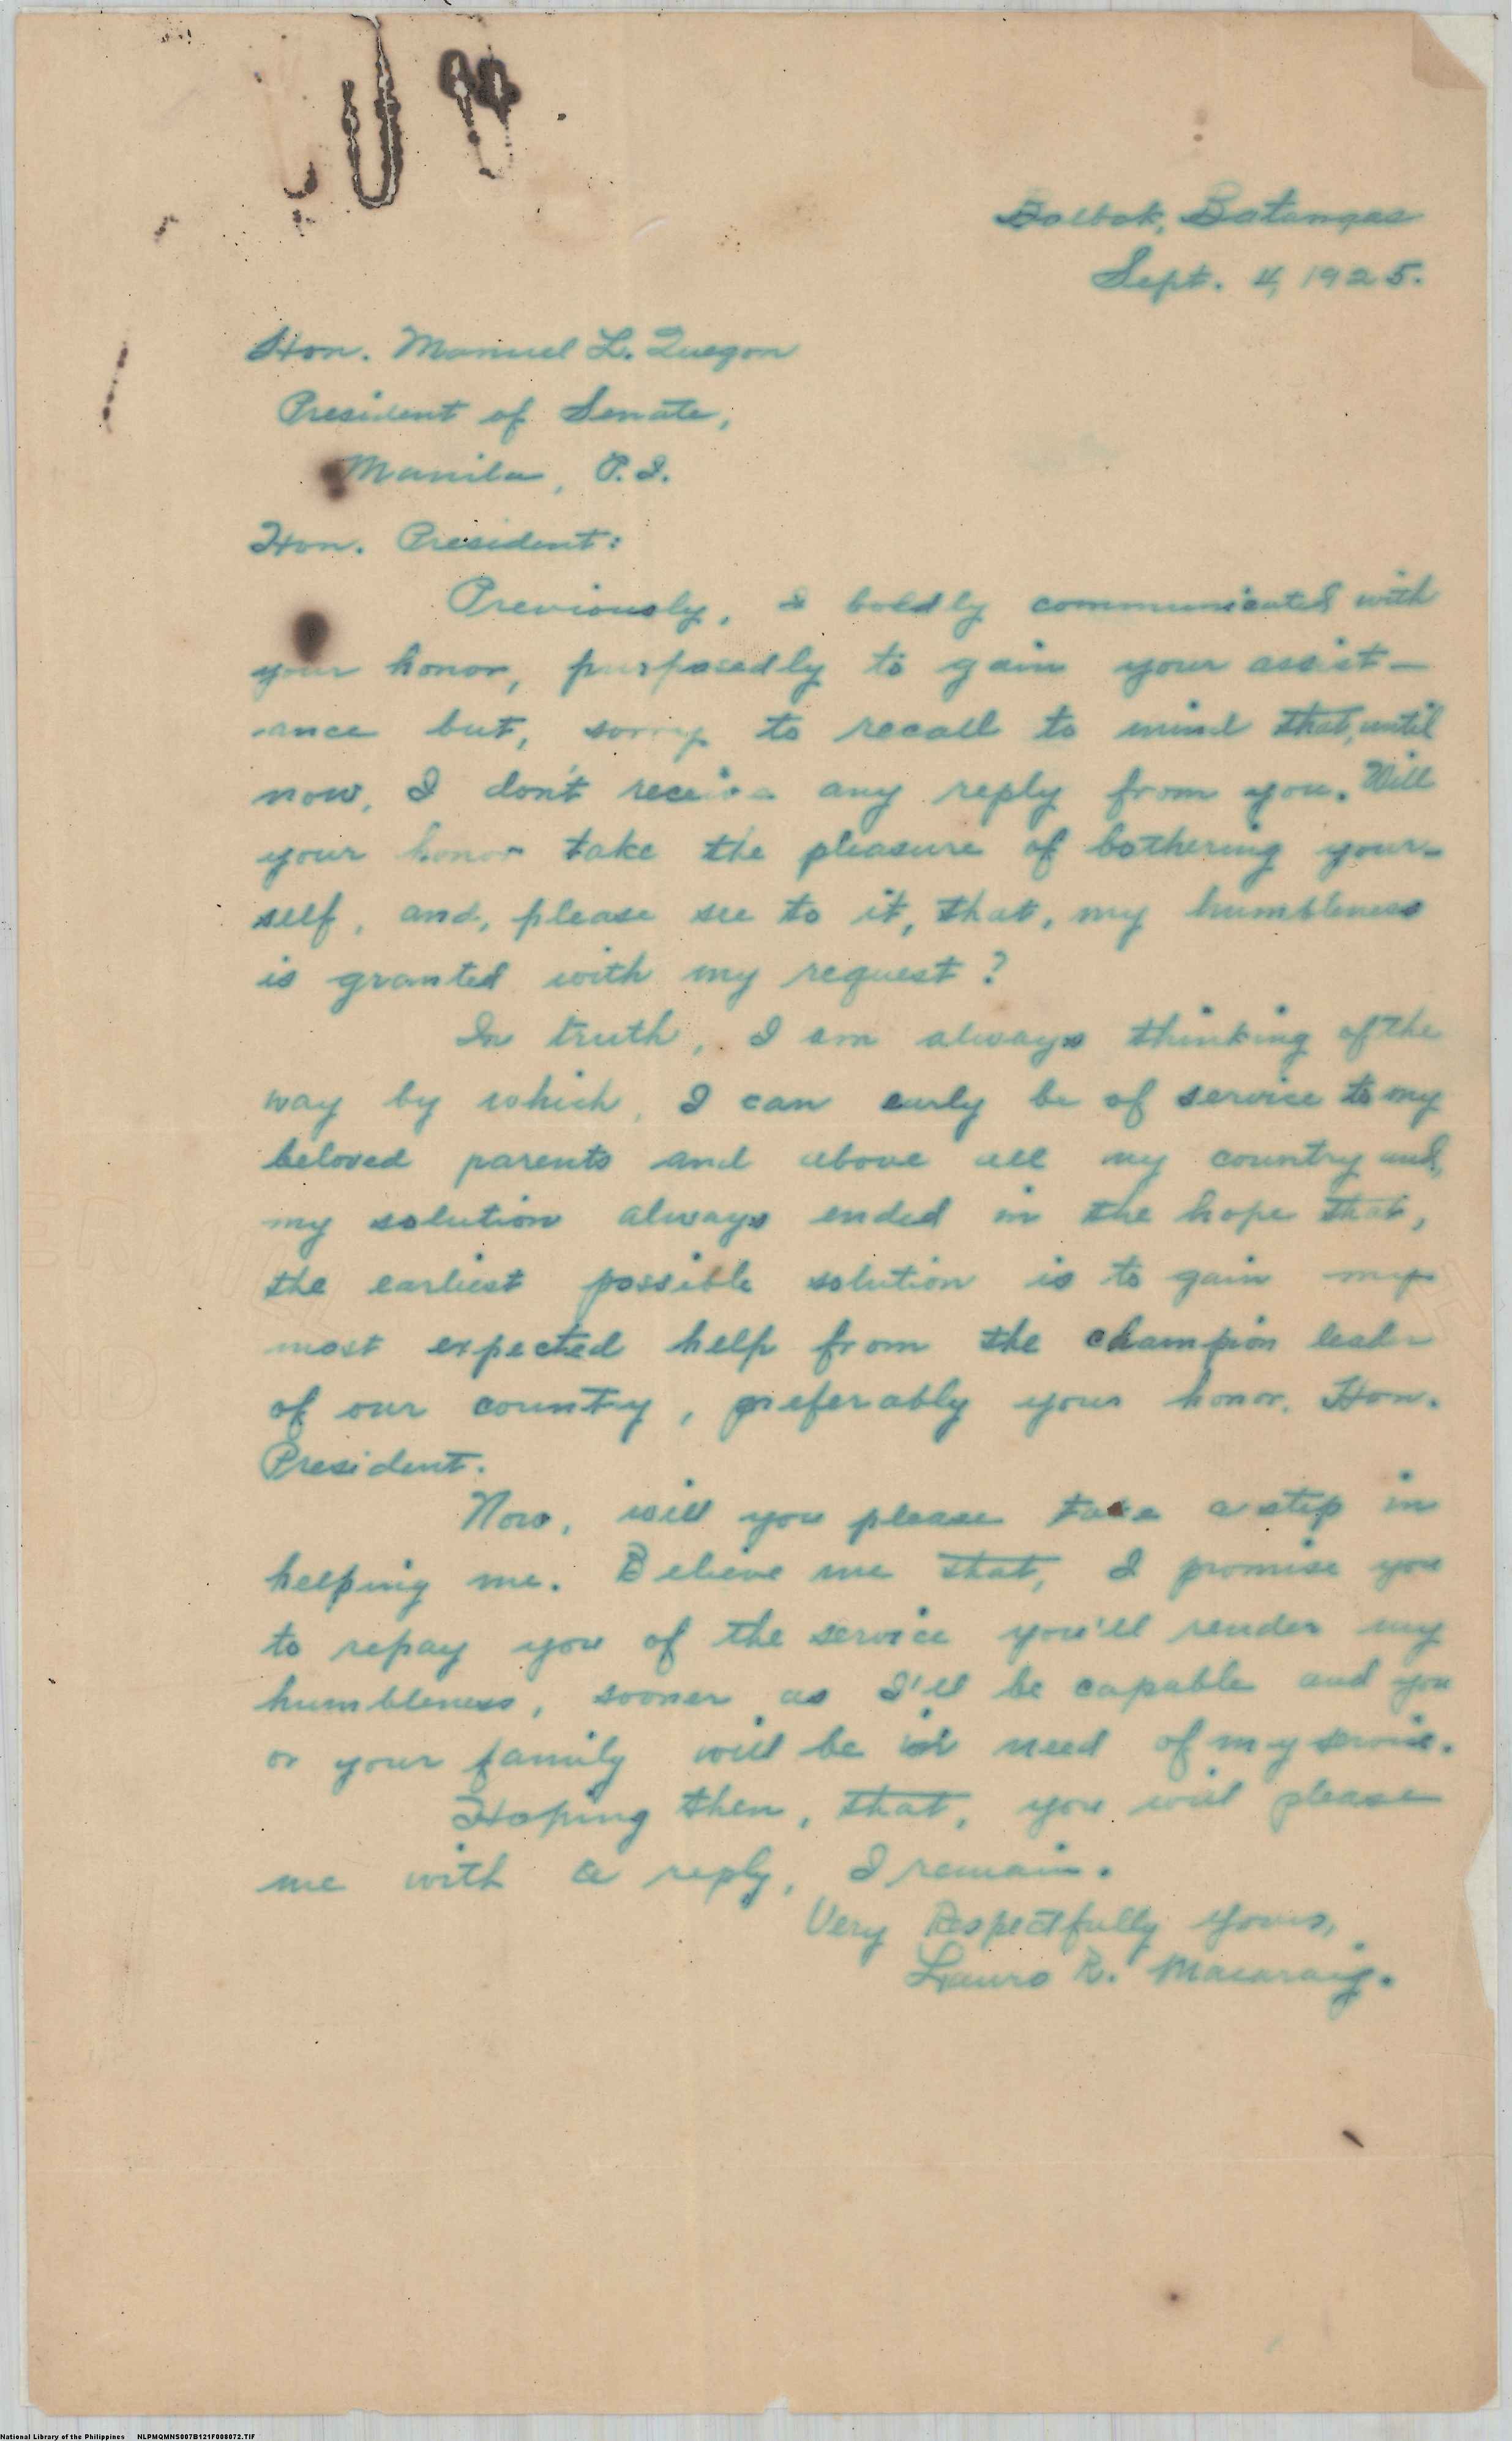 Bolbok, Batangas
Sept. 4, 1925.
Hon. Manuel L. Quezon
President of Senate,
Manila, P.I.
Hon. President:
Previously, I boldly communicated with
your honor, purposedly to gain your assist-
ance but, sorry to recall to mind that, until
now, I don't receive any reply from you. Will
your honor take the pleasure of bothering your-
self, and, please see to it, that, my humbleness
is granted with my request?
In truth, I am always thinking of the
way by which, I can early be of service to my
beloved parents and above all my country and,
my solution always ended in the hope that,
the earliest possible solution is to gain my
most expected help from the champion leader
of our country, preferably your honor, Hon.
President.
Now, will you please take a step in
helping me. Believe me that, I promise you
to repay you of the service you'll render my
humbleness, sooner as I'll be capable and you
or your family will be in need of my service.
Hoping then, that, you will please
me with a reply, I remain.
Very Respectfully yours,
Lauro R. Macaraig.
National Library of the Philippines NLPMQMNS007B121F008072.TIF